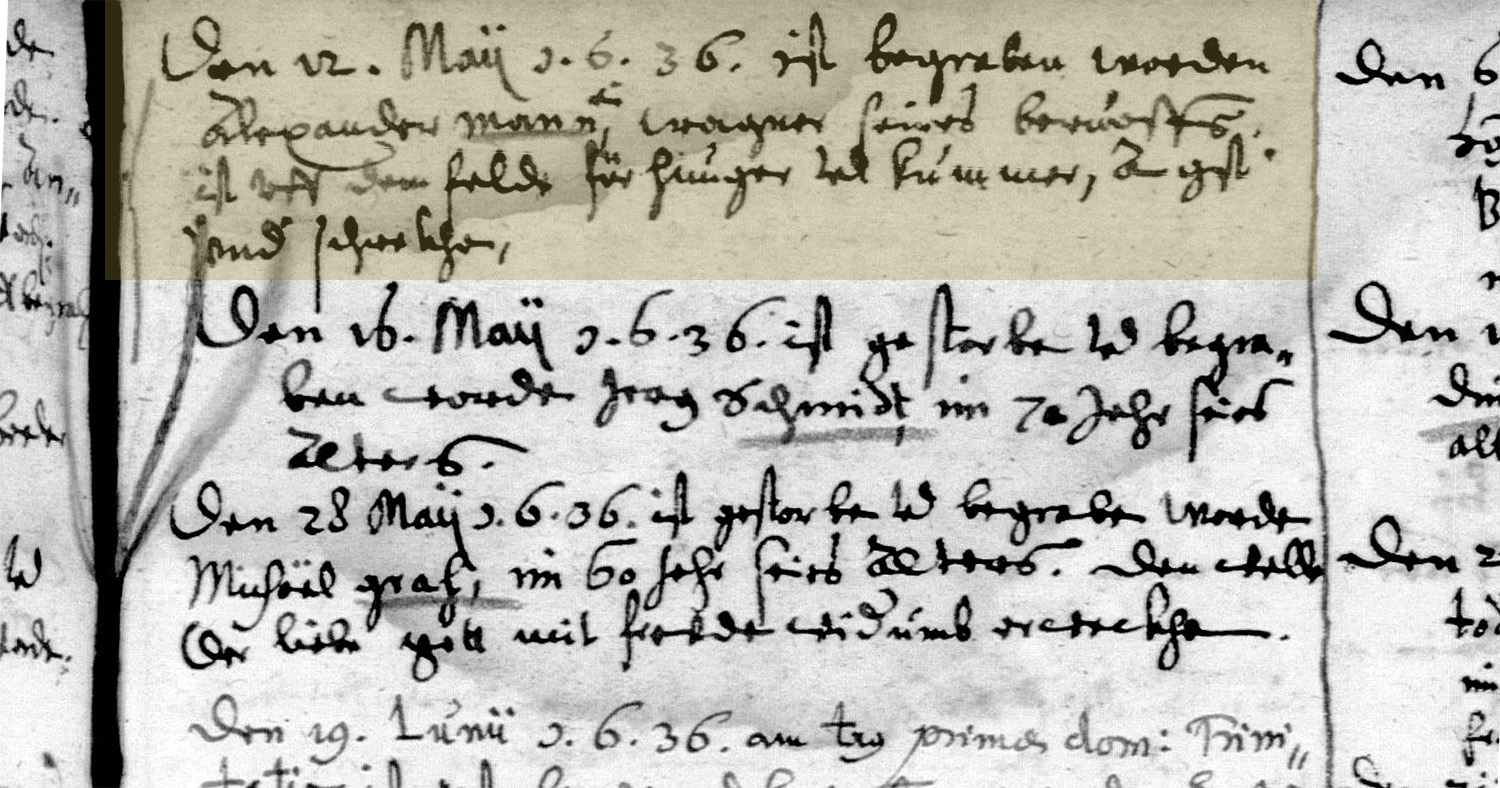 Den 12. Maÿ 1.6.36. ist begraben worden
Alexander mann, wagner seines beruoffs.
ist vff dem felde für hunger vnd kummer, Angst
vnd schrekhen,
Den 16. Maÿ 1.6.36. ist gestorben vnd begra-
ben worde Jerg Schmidt, im 70 Jahr seines
Alters.
Den 28 Maÿ 1.6.36. ist gestorben vnd begraben worde
Michäel graf, im 60 Jahr seines Alters. Den welle
Der liebe gott mit freude widrumb erweckhen.
Den 19. Junii 1.6.36. am prima dom: Trini
Den 6
Den 1
Den 2